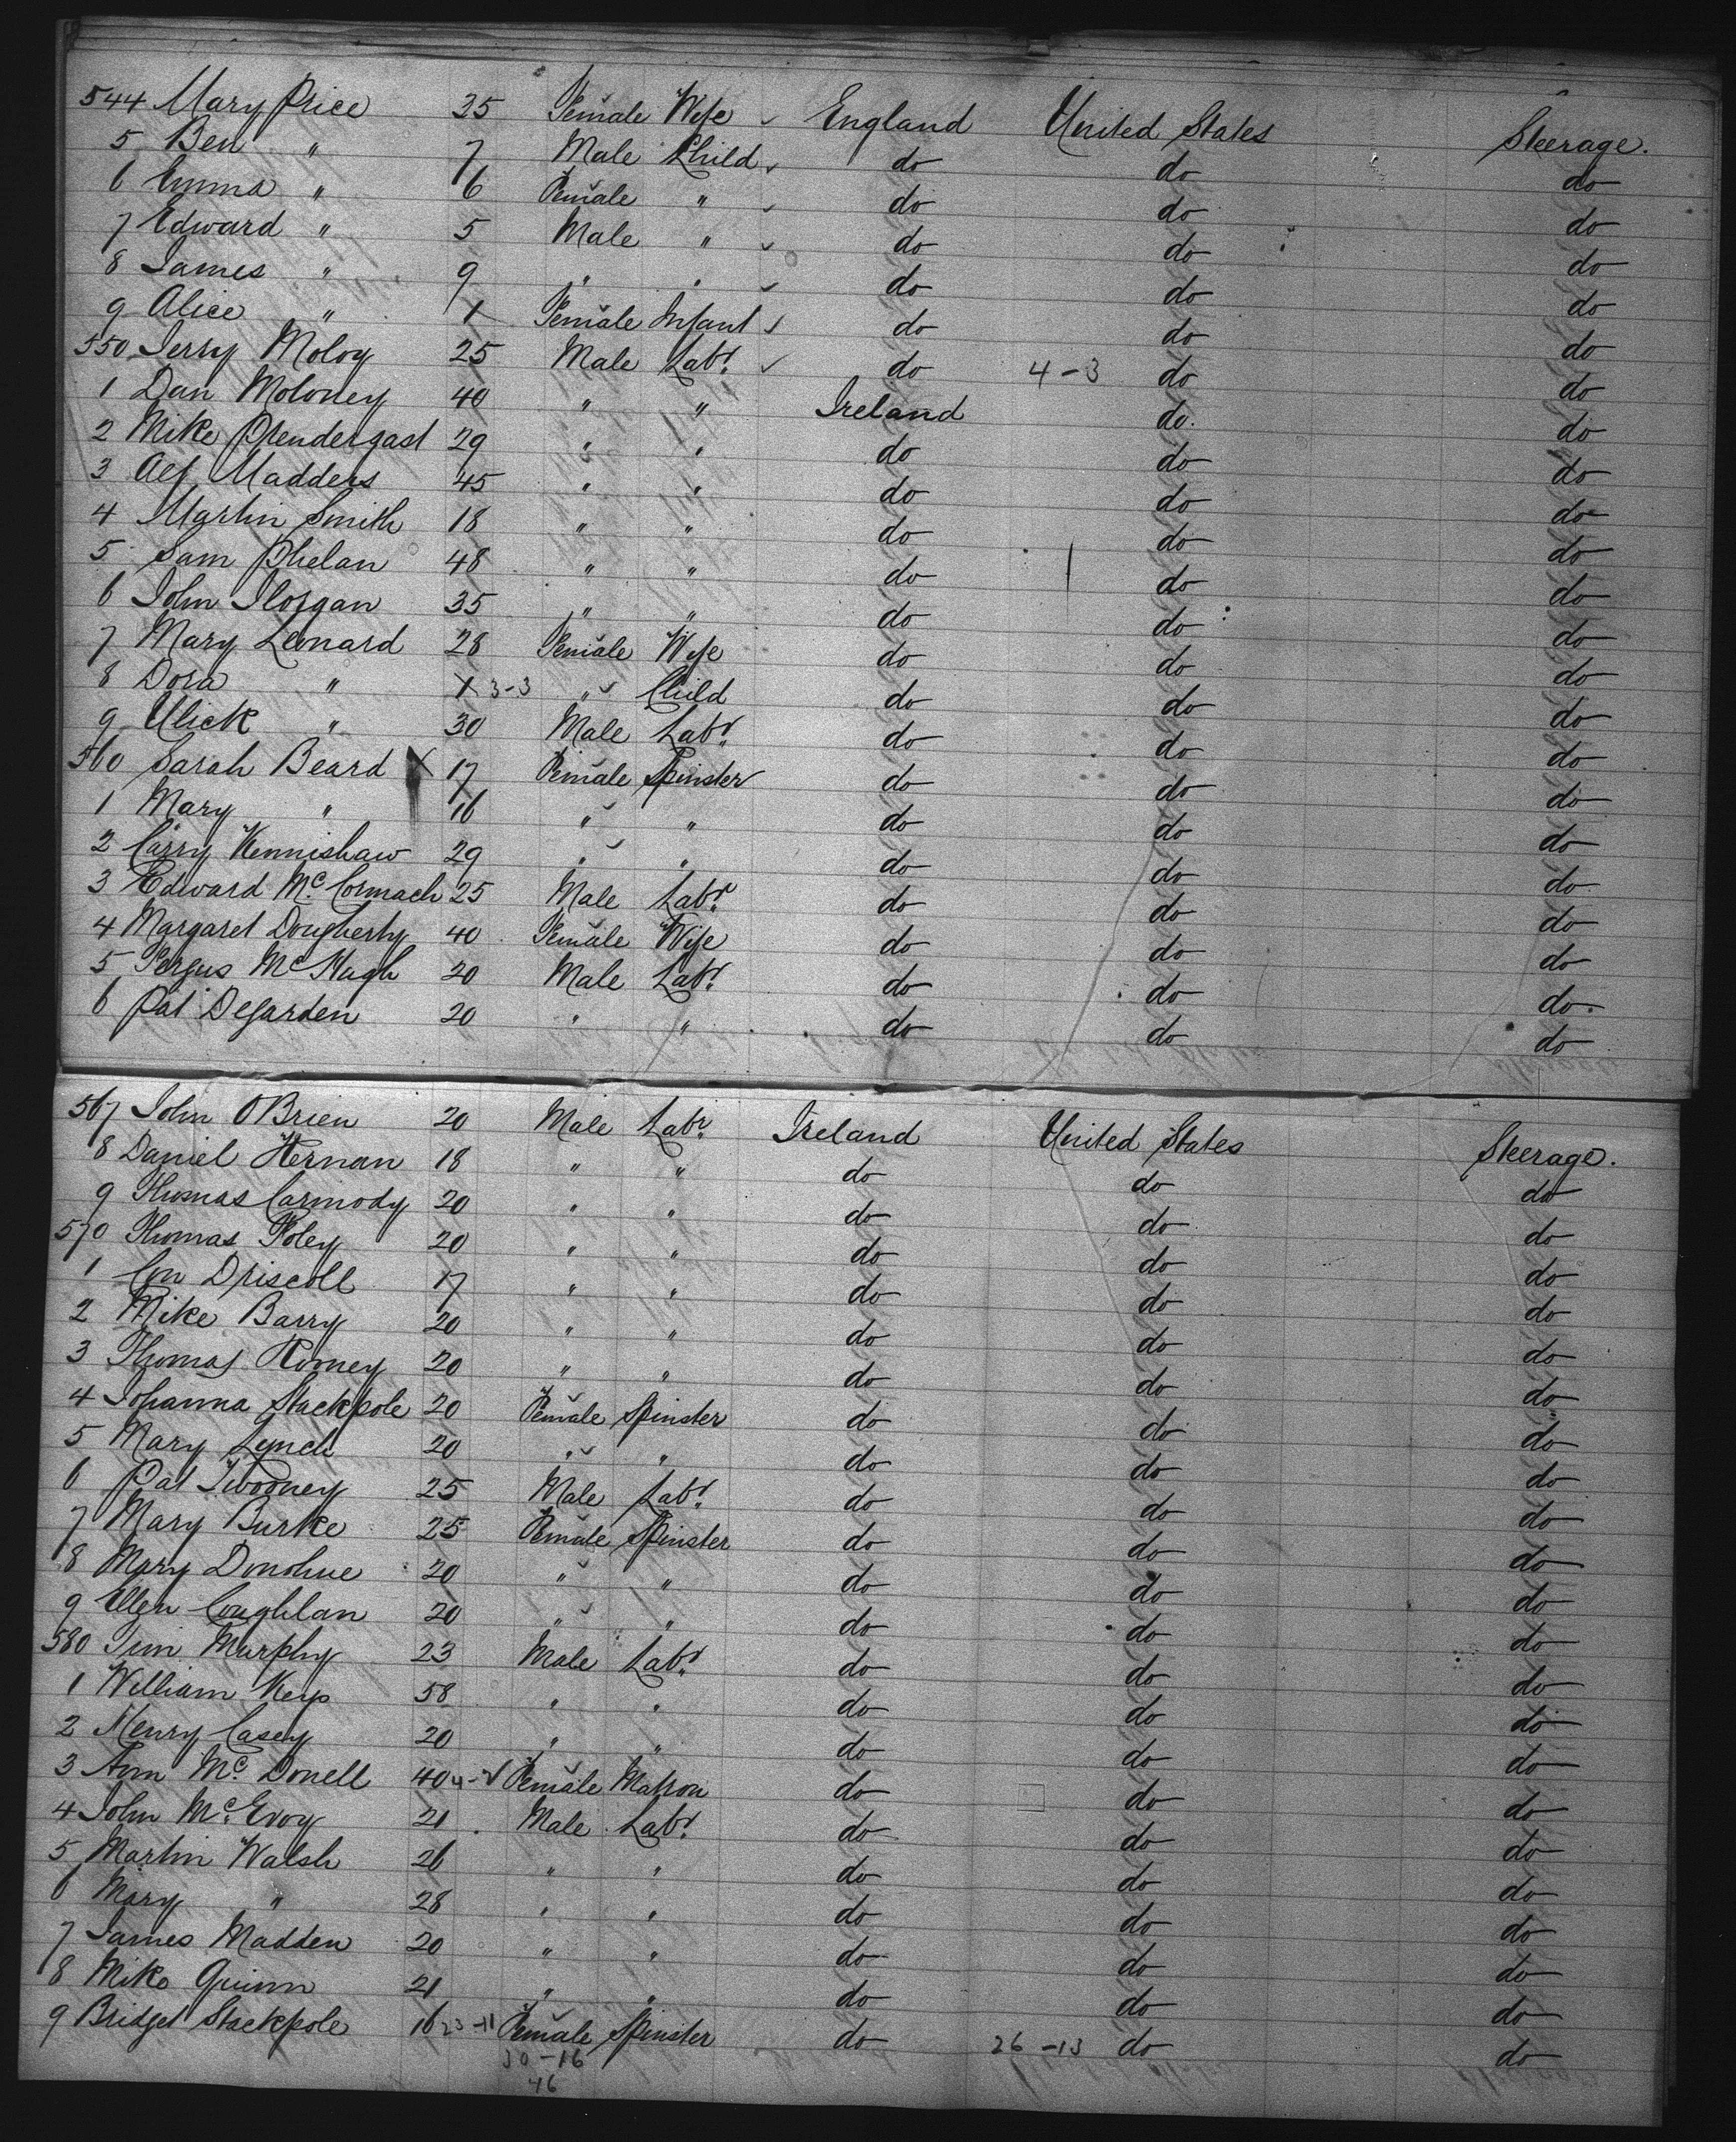 544 Mary Price 35 Female Wife England United States Steerage.
5 Ben " 7 Male Child do do do
6 Emma " 6 Female " do do do
7 Edward " 5 Male " do do do
8 James " 9 " " do do do
9 Alice " 1 Female Infant do do do
550 Jerry Moloy 25 Male Labr. do 4-3 do do
1 Dan Moloney 40 " " Ireland do. do
2 Mike Prendergast 29 " " do do do
3 Alf Madders 45 " " do do do
4 Martin Smith 18 " " do do do
5 Sam Phelan 48 " " do do do
6 John 35 " " do do do
7 Mary Lenard 28 Female Wife do do do
8 Dora " 1 3-3 " Child do do do
9 Ulick " 30 Male Labr. do do do
560 Sarah Beard X 17 Female Spinster do do do
1 Mary " 16 " " do do do
2 Carry Kennishaw 29 " " do do do
3 Edward Mc. Cormach 25 Male Labr. do do do
4 Margaret Dougherty 40 Female Wife do do do
5 Fergus Mc Hugh 20 Male Labr. do do do
6 Pat Degarden 20 " " do do do
567 John O'Brien 20 Male Labr. Ireland United States Steerage.
8 Daniel Hernan 18 " " do do do
9 Thomas Carmody 20 " " do do do
570 Thomas Foley 20 " " do do do
1 Con Driscoll 17 " " do do do
2 Mike Barry 20 " " do do do
3 Thomas 20 " " do do do
4 Johanna Stackpole 20 Female Spinster do do do
5 Mary Lynch 20 " " do do do
6 Pat Twooney 25 Male Labr. do do do
7 Mary Burke 25 Female Spinster do do do
8 Mary Donohue 20 " " do do do
9 Ellen Coughlan 20 " " do do do
580 Murphy 23 Male Labr. do do do
1 William Keys 58 " " do do do
2 Henry Casey 20 " " do do do
3 Ann Mc. Donell 40 Female Matron do do do
4 John Mc. Evoy 21 Male Labr. do do do
5 Martin Walsh 26 " " do do do
6 Mary " 28 " " do do do
7 James Madden 20 " " do do do
8 Mike Quinn 21 " " do do do
9 Bridget Stackpole 16 23-11 Female Spinster do 26-13 do do
30-16
46